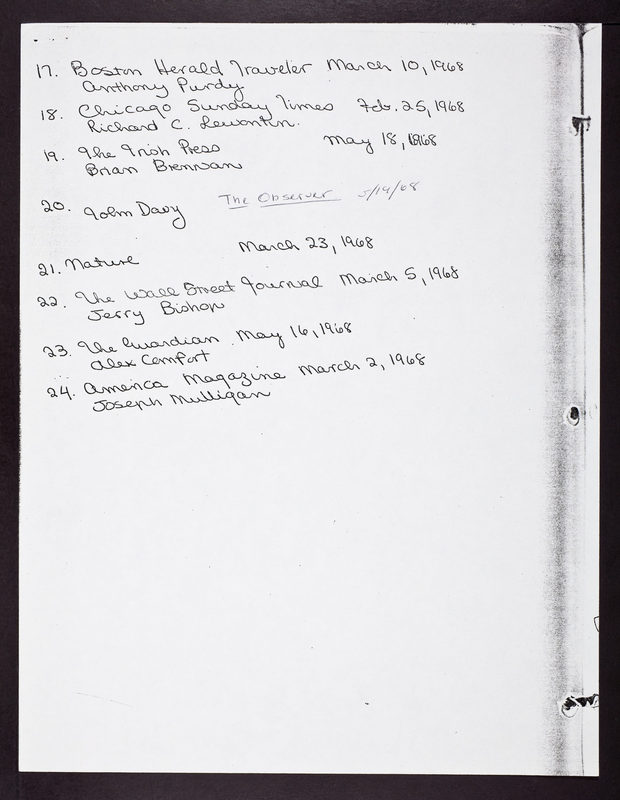 17. Boston Herald Traveler March 10, 1968
Anthony Purdy
18. Chicago Sunday Times Feb. 25, 1968
Richard C. Lewontin.
19. The Irish Press May 18, 1968
Brian Brennan
20. John Davy The Observer 5/19/68
21. Nature March 23, 1968
22. The Wall Street Journal March 5, 1968
Jerry Bishop
23. The Guardian May 16, 1968
Alex Comfort
24. America Magazine March 2, 1968
Joseph Mulligan